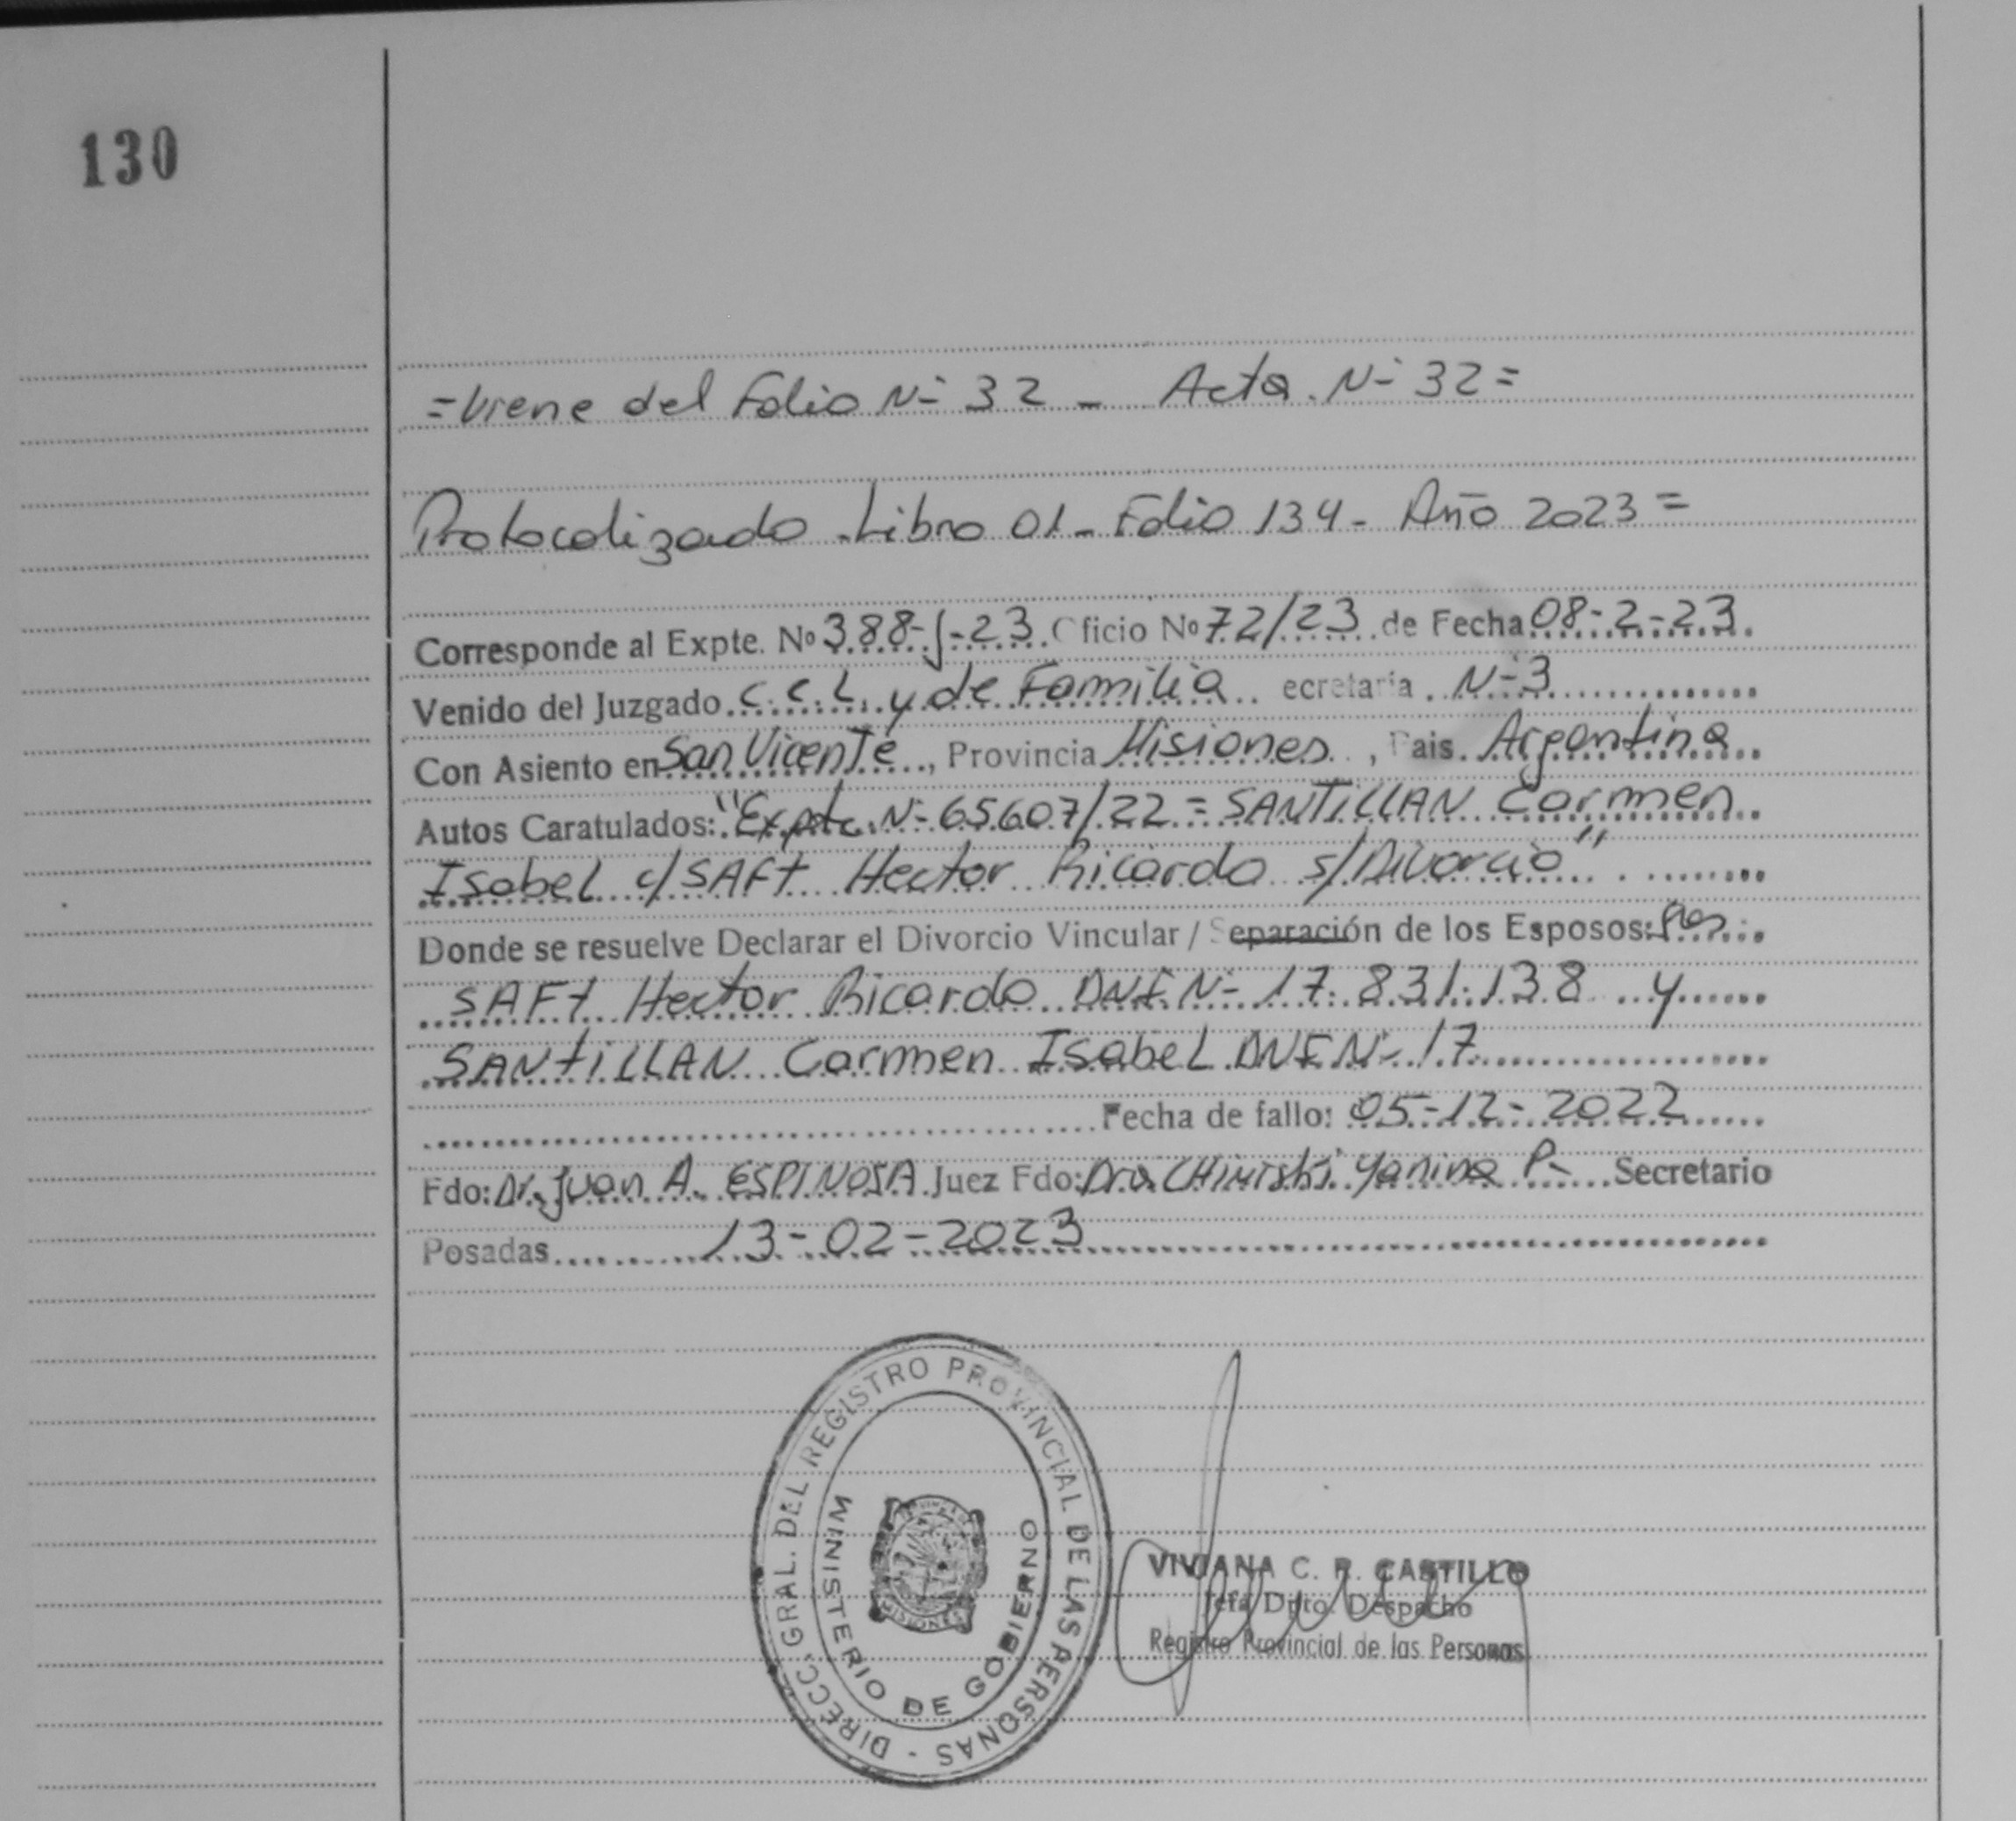 130
=Viene del Folio Nº 32 - Acta Nº 32=
Protocolizado Libro 01 - Folio 134 - Año 2023=
Corresponde al Expte. Nº 388-J-23 Oficio Nº 72/23 de Fecha 08-2-23
Venido del Juzgado C.C.L. y de Familia ecretaría Nº 3
Con Asiento en San Vicente, Provincia Misiones, Pais Argentina
Autos Caratulados: "Expte. Nº 65607/22 = SANTILLAN Carmen
Isabel c/ SAFT Hector Ricardo s/ Divorcio"
Donde se resuelve Declarar el Divorcio Vincular / Separación de los Esposos:
SAFT Hector Ricardo DNI Nº 17.831.138 y
SANTILLAN Carmen Isabel DNI Nº 17
Fecha de fallo: 05-12-2022
Fdo: Dr. Juan A. ESPINOSA Juez Fdo: Dra. Yanina P. Secretario
Posadas 13-02-2023
DIRECC. GRAL. DEL REGISTRO PROVINCIAL DE LAS PERSONAS -
MINISTERIO DE GOBIERNO
MISIONES
VIVIANA C. R. CASTILLO
Jefa Dpto. Despacho
Registro Provincial de las Personas